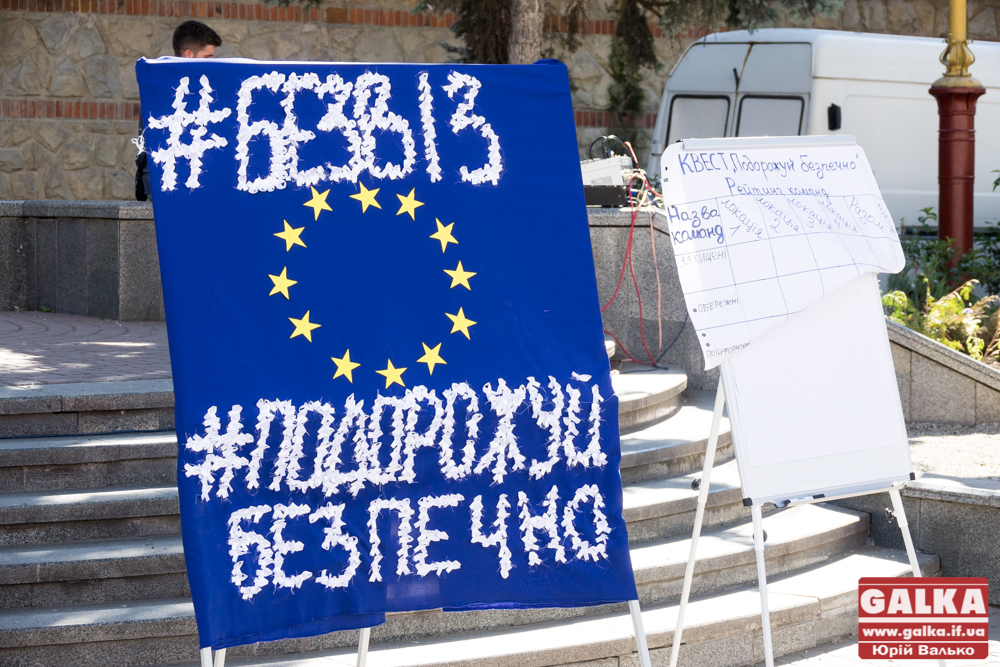 #БЕЗВІЗ
#ПОДОРОЖУЙ
БЕЗПЕЧНО
КВЕСТ „Подорожуй безпечно"
Рейтинг команд
Назва команд
локація 1
локація 2
локація
локація
Разом
ЗАХИЩЕНІ
ОБЕРЕЖНІ
GALKA
www.galka.if.ua
Юрій Валько